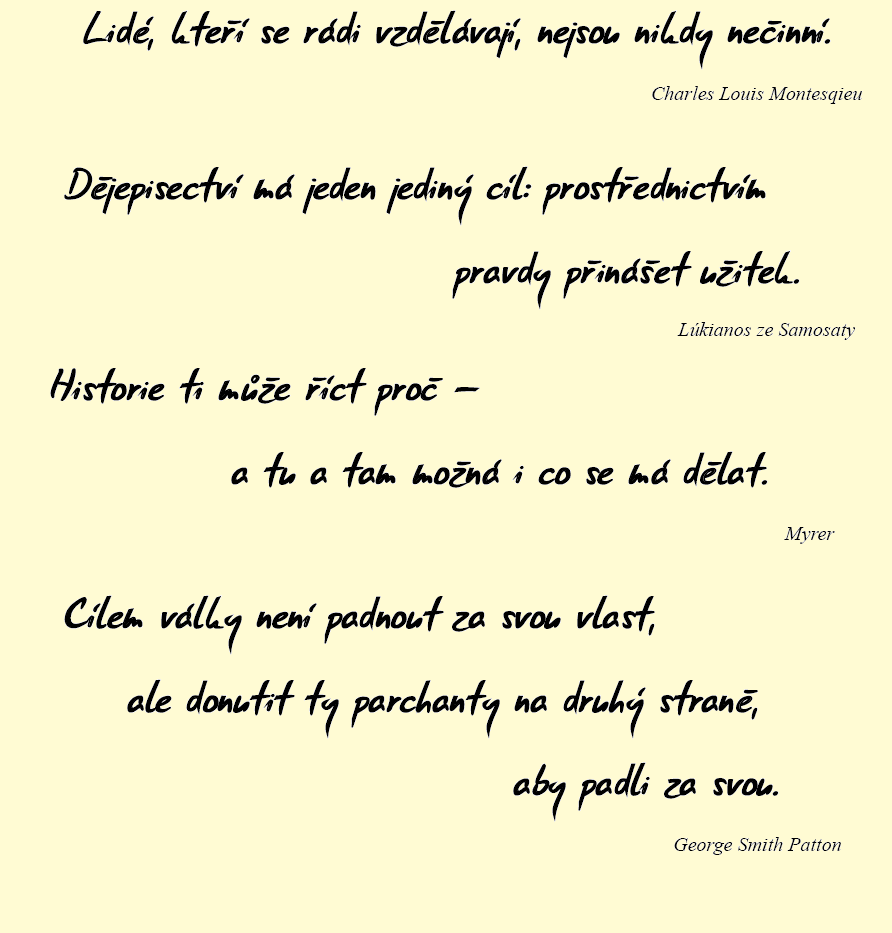 Lidé, kteří se rádi vzdělávají, nejsou nikdy nečinní.
Charles Louis Montesqieu
Dějepisectví má jeden jediný cíl: prostřednictvím
pravdy přinášet užitek.
Lúkianos ze Samosaty
Historie ti může říct proč –
a tu a tam možná i co se má dělat.
Myrer
Cílem války není padnout za svou vlast,
ale donutit ty parchanty na druhý straně,
aby padli za svou.
George Smith Patton